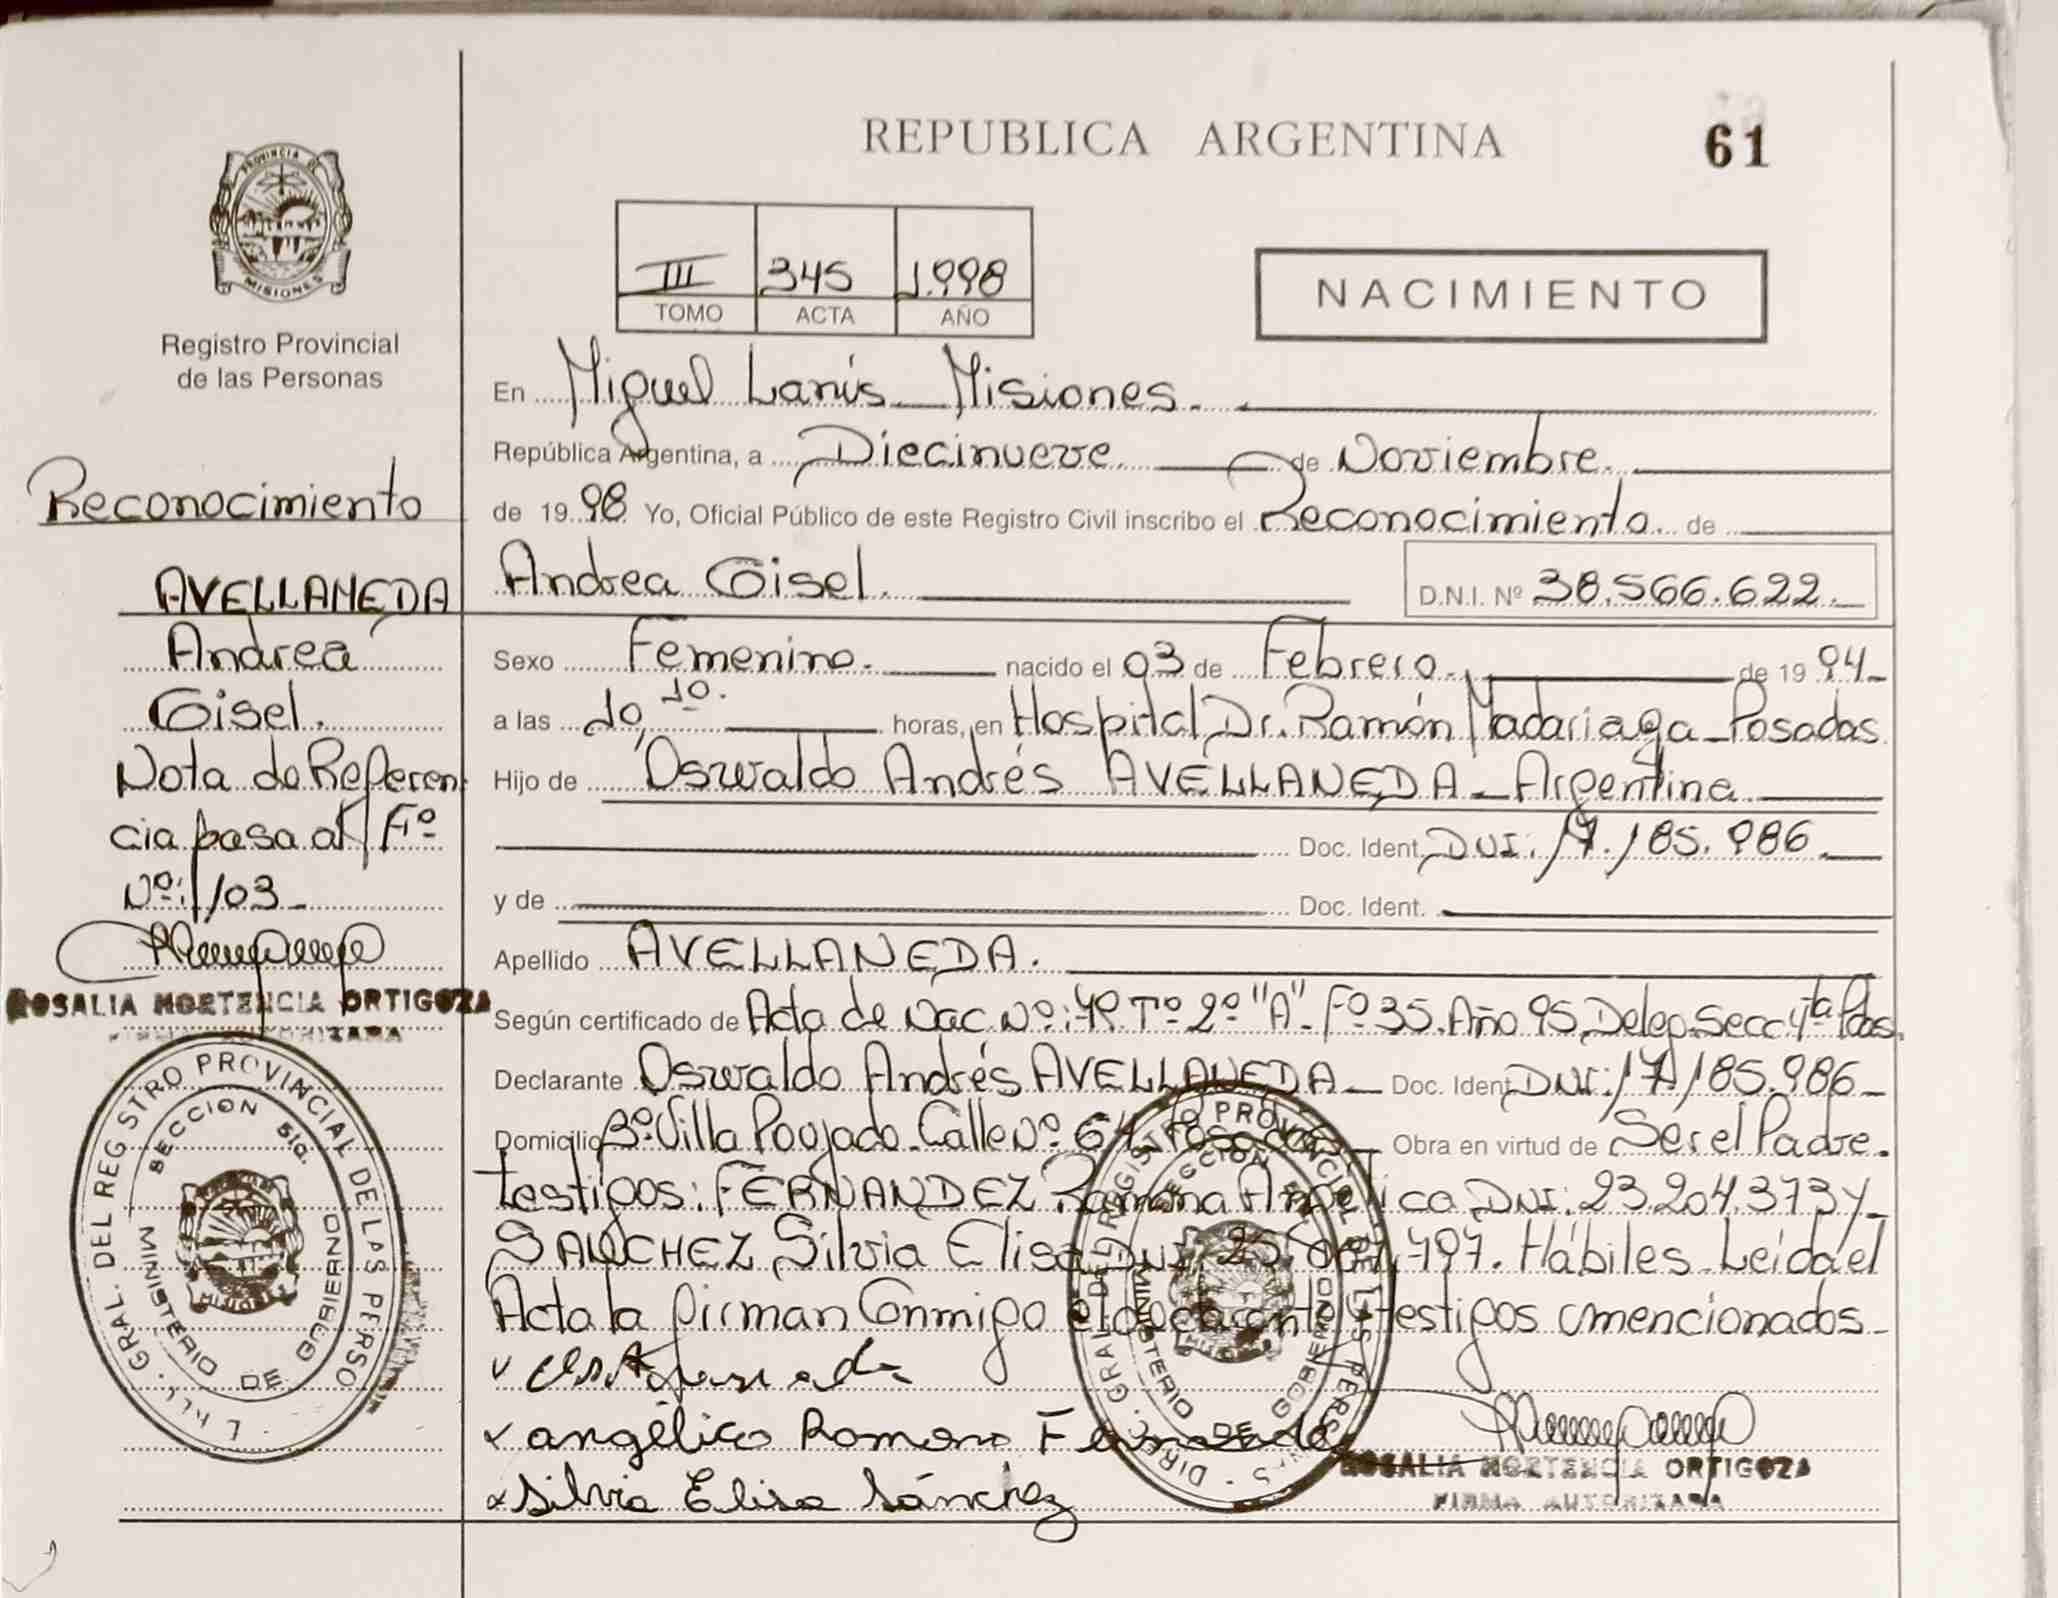 REPUBLICA ARGENTINA
61
PROVINCIA DE
MISIONES
Registro Provincial
de las Personas
III 345 1.998
TOMO ACTA AÑO
NACIMIENTO
En Miguel Lanús - Misiones.
República Argentina, a Diecinueve de Noviembre.
de 19 98 Yo, Oficial Público de este Registro Civil inscribo el Reconocimiento de
Andrea Gisel. D.N.I. Nº 38.566.622.
Sexo Femenino. nacido el 03 de Febrero. de 19 94
a las 10,10. horas, en Hospital Dr. Ramón Madariaga - Posadas
Hijo de Oswaldo Andrés AVELLANEDA - Argentina
Doc. Ident. DNI: 17.185.986
y de Doc. Ident.
Apellido AVELLANEDA.
Según certificado de Acta de Nac. Nº: Tº 2º "A" - Fº 35. Año 95. Deleg. Secc 4ta Pdas.
Declarante Oswaldo Andrés AVELLANEDA - Doc. Ident. DNI: 17.185.986
Domicilio Bº Villa Poujade - Calle Nº 64 Posadas Obra en virtud de Ser el Padre.
testigos: FERNANDEZ Ramona Angélica DNI: 23.204.373 y
SANCHEZ Silvia Elisa DNI 797. Hábiles - Leída el
Acta la firman Conmigo el declarante y testigos mencionados
angélica Romona Fernandez
Silvia Elisa Sánchez
ROSALIA HORTENCIA ORTIGOZA
FIRMA AUTORIZADA
Reconocimiento
AVELLANEDA
Andrea
Gisel.
Nota de Referen
cia pasa al Fº
Nº: 103
ROSALIA HORTENCIA ORTIGOZA
FIRMA AUTORIZADA
GRAL. DEL REGISTRO PROVINCIAL DE LAS PERSO
SECCION 5ta.
MINISTERIO DE GOBIERNO
MISIONES
DIREC. GRAL. DEL REGISTRO PROVINCIAL DE LAS PERSONAS
SECCION
MINISTERIO DE GOBIERNO